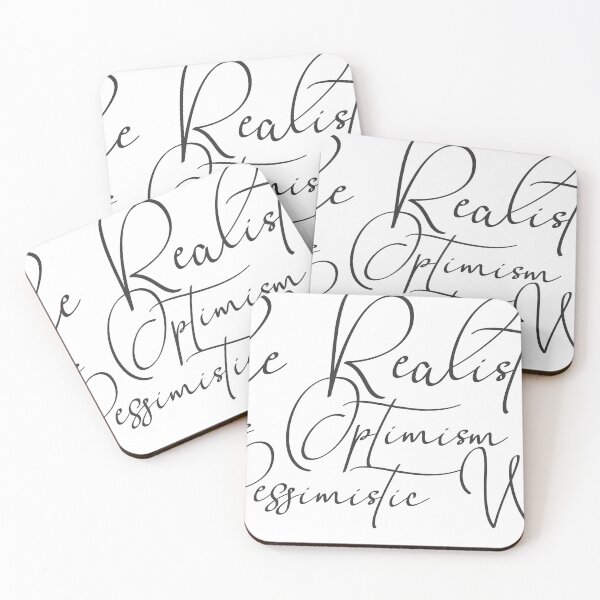 e Realist
e Realist
Optimism
W
e Realist
Optimism
Pessimistic
e Realist
Optimism
essimistic W